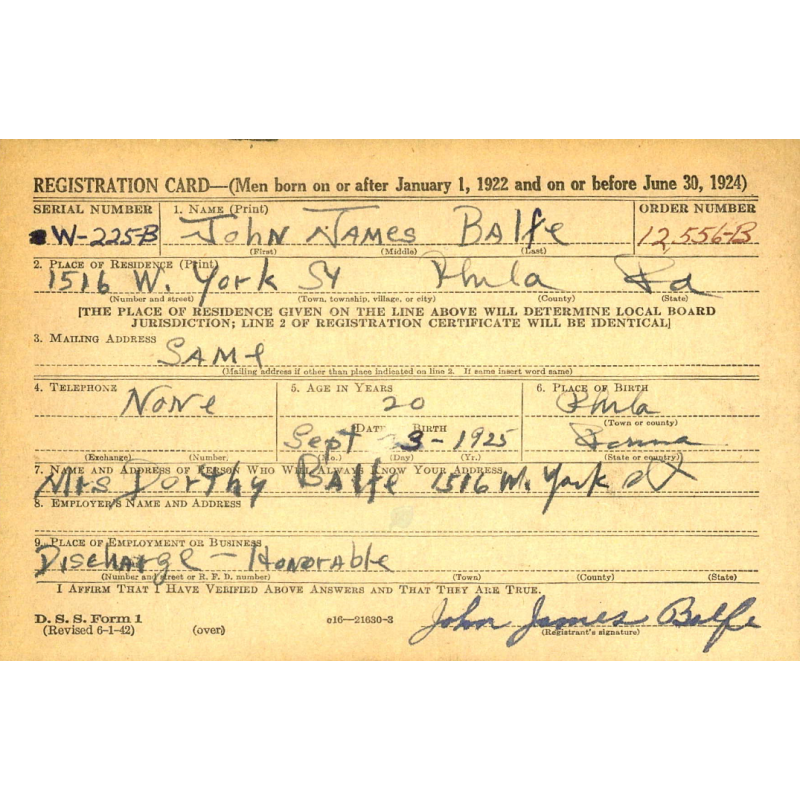 REGISTRATION CARD—(Men born on or after January 1, 1922 and on or before June 30, 1924)
SERIAL NUMBER 1. NAME (Print) ORDER NUMBER
W-225-B John James Balfe 12,556-B
(First) (Middle) (Last)
2. PLACE OF RESIDENCE (Print)
1516 W. York St Phila Pa
(Number and street) (Town, township, village, or city) (County) (State)
[THE PLACE OF RESIDENCE GIVEN ON THE LINE ABOVE WILL DETERMINE LOCAL BOARD
JURISDICTION; LINE 2 OF REGISTRATION CERTIFICATE WILL BE IDENTICAL]
3. MAILING ADDRESS
Same
(Mailing address if other than place indicated on line 2. If same insert word same)
4. TELEPHONE 5. AGE IN YEARS 6. PLACE OF BIRTH
None 20 Phila
(Town or county)
DATE BIRTH
Sept 3-1925 Penna
(Exchange) (Number) (Mo.) (Day) (Yr.) (State or country)
7. NAME AND ADDRESS OF PERSON WHO WILL ALWAYS KNOW YOUR ADDRESS
Mrs Dorthy Balfe 1516 W. York St
8. EMPLOYER'S NAME AND ADDRESS
9. PLACE OF EMPLOYMENT OR BUSINESS
Discharge — Honorable
(Number and street or R. F. D. number) (Town) (County) (State)
I AFFIRM THAT I HAVE VERIFIED ABOVE ANSWERS AND THAT THEY ARE TRUE.
D. S. S. Form 1 c16—21630-3 John James Balfe
(Revised 6-1-42) (over) (Registrant's signature)